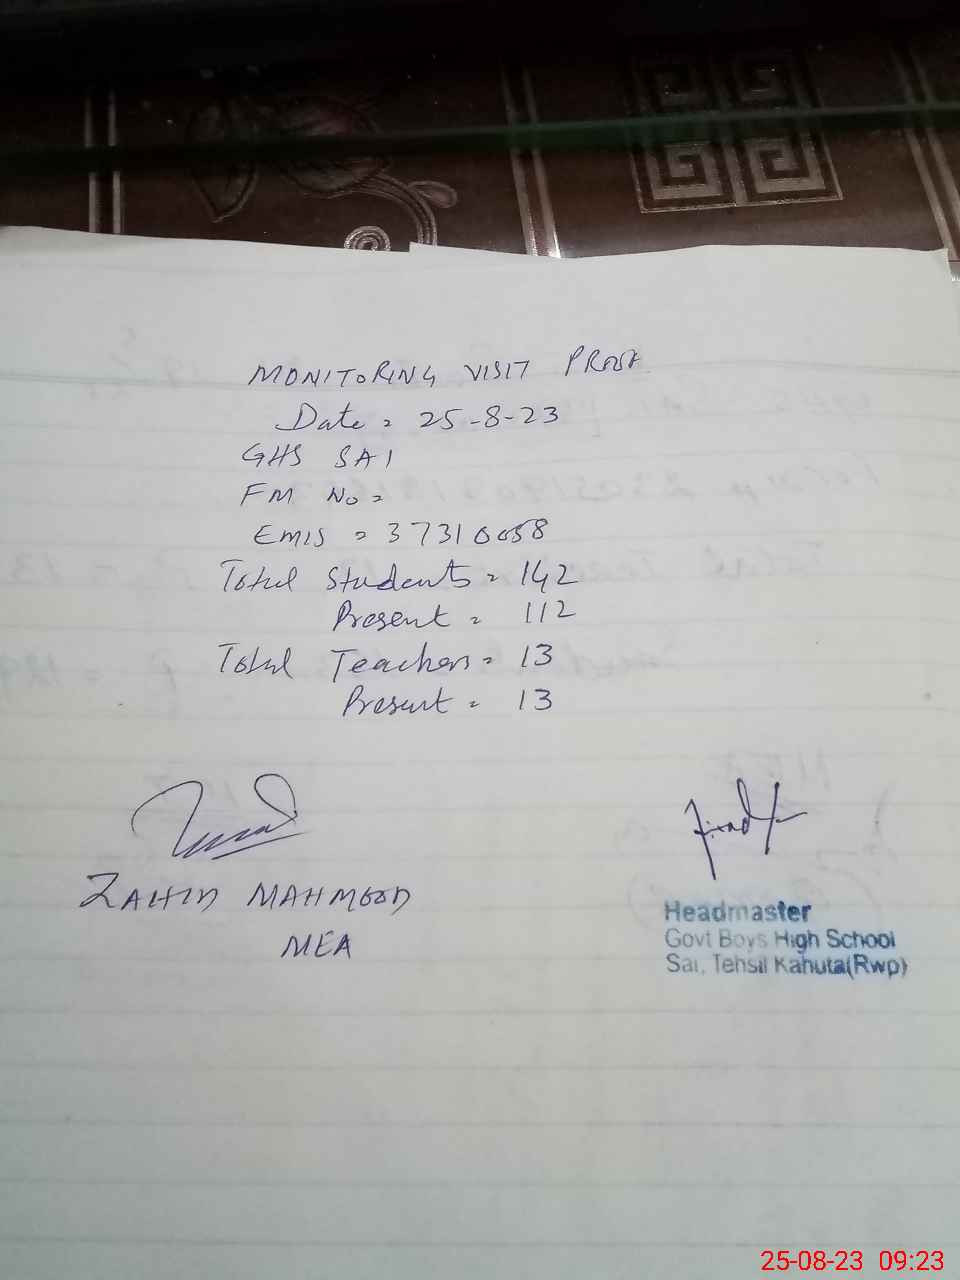 MONITORING VISIT PROOF
Date = 25-8-23
GHS SAI
FM No =
EMIS = 37310058
Total Students = 142
Present = 112
Total Teachers = 13
Present = 13
ZAHID MAHMOOD
MEA
Headmaster
Govt Boys High School
Sai, Tehsil Kahuta(Rwp)
25-08-23 09:23